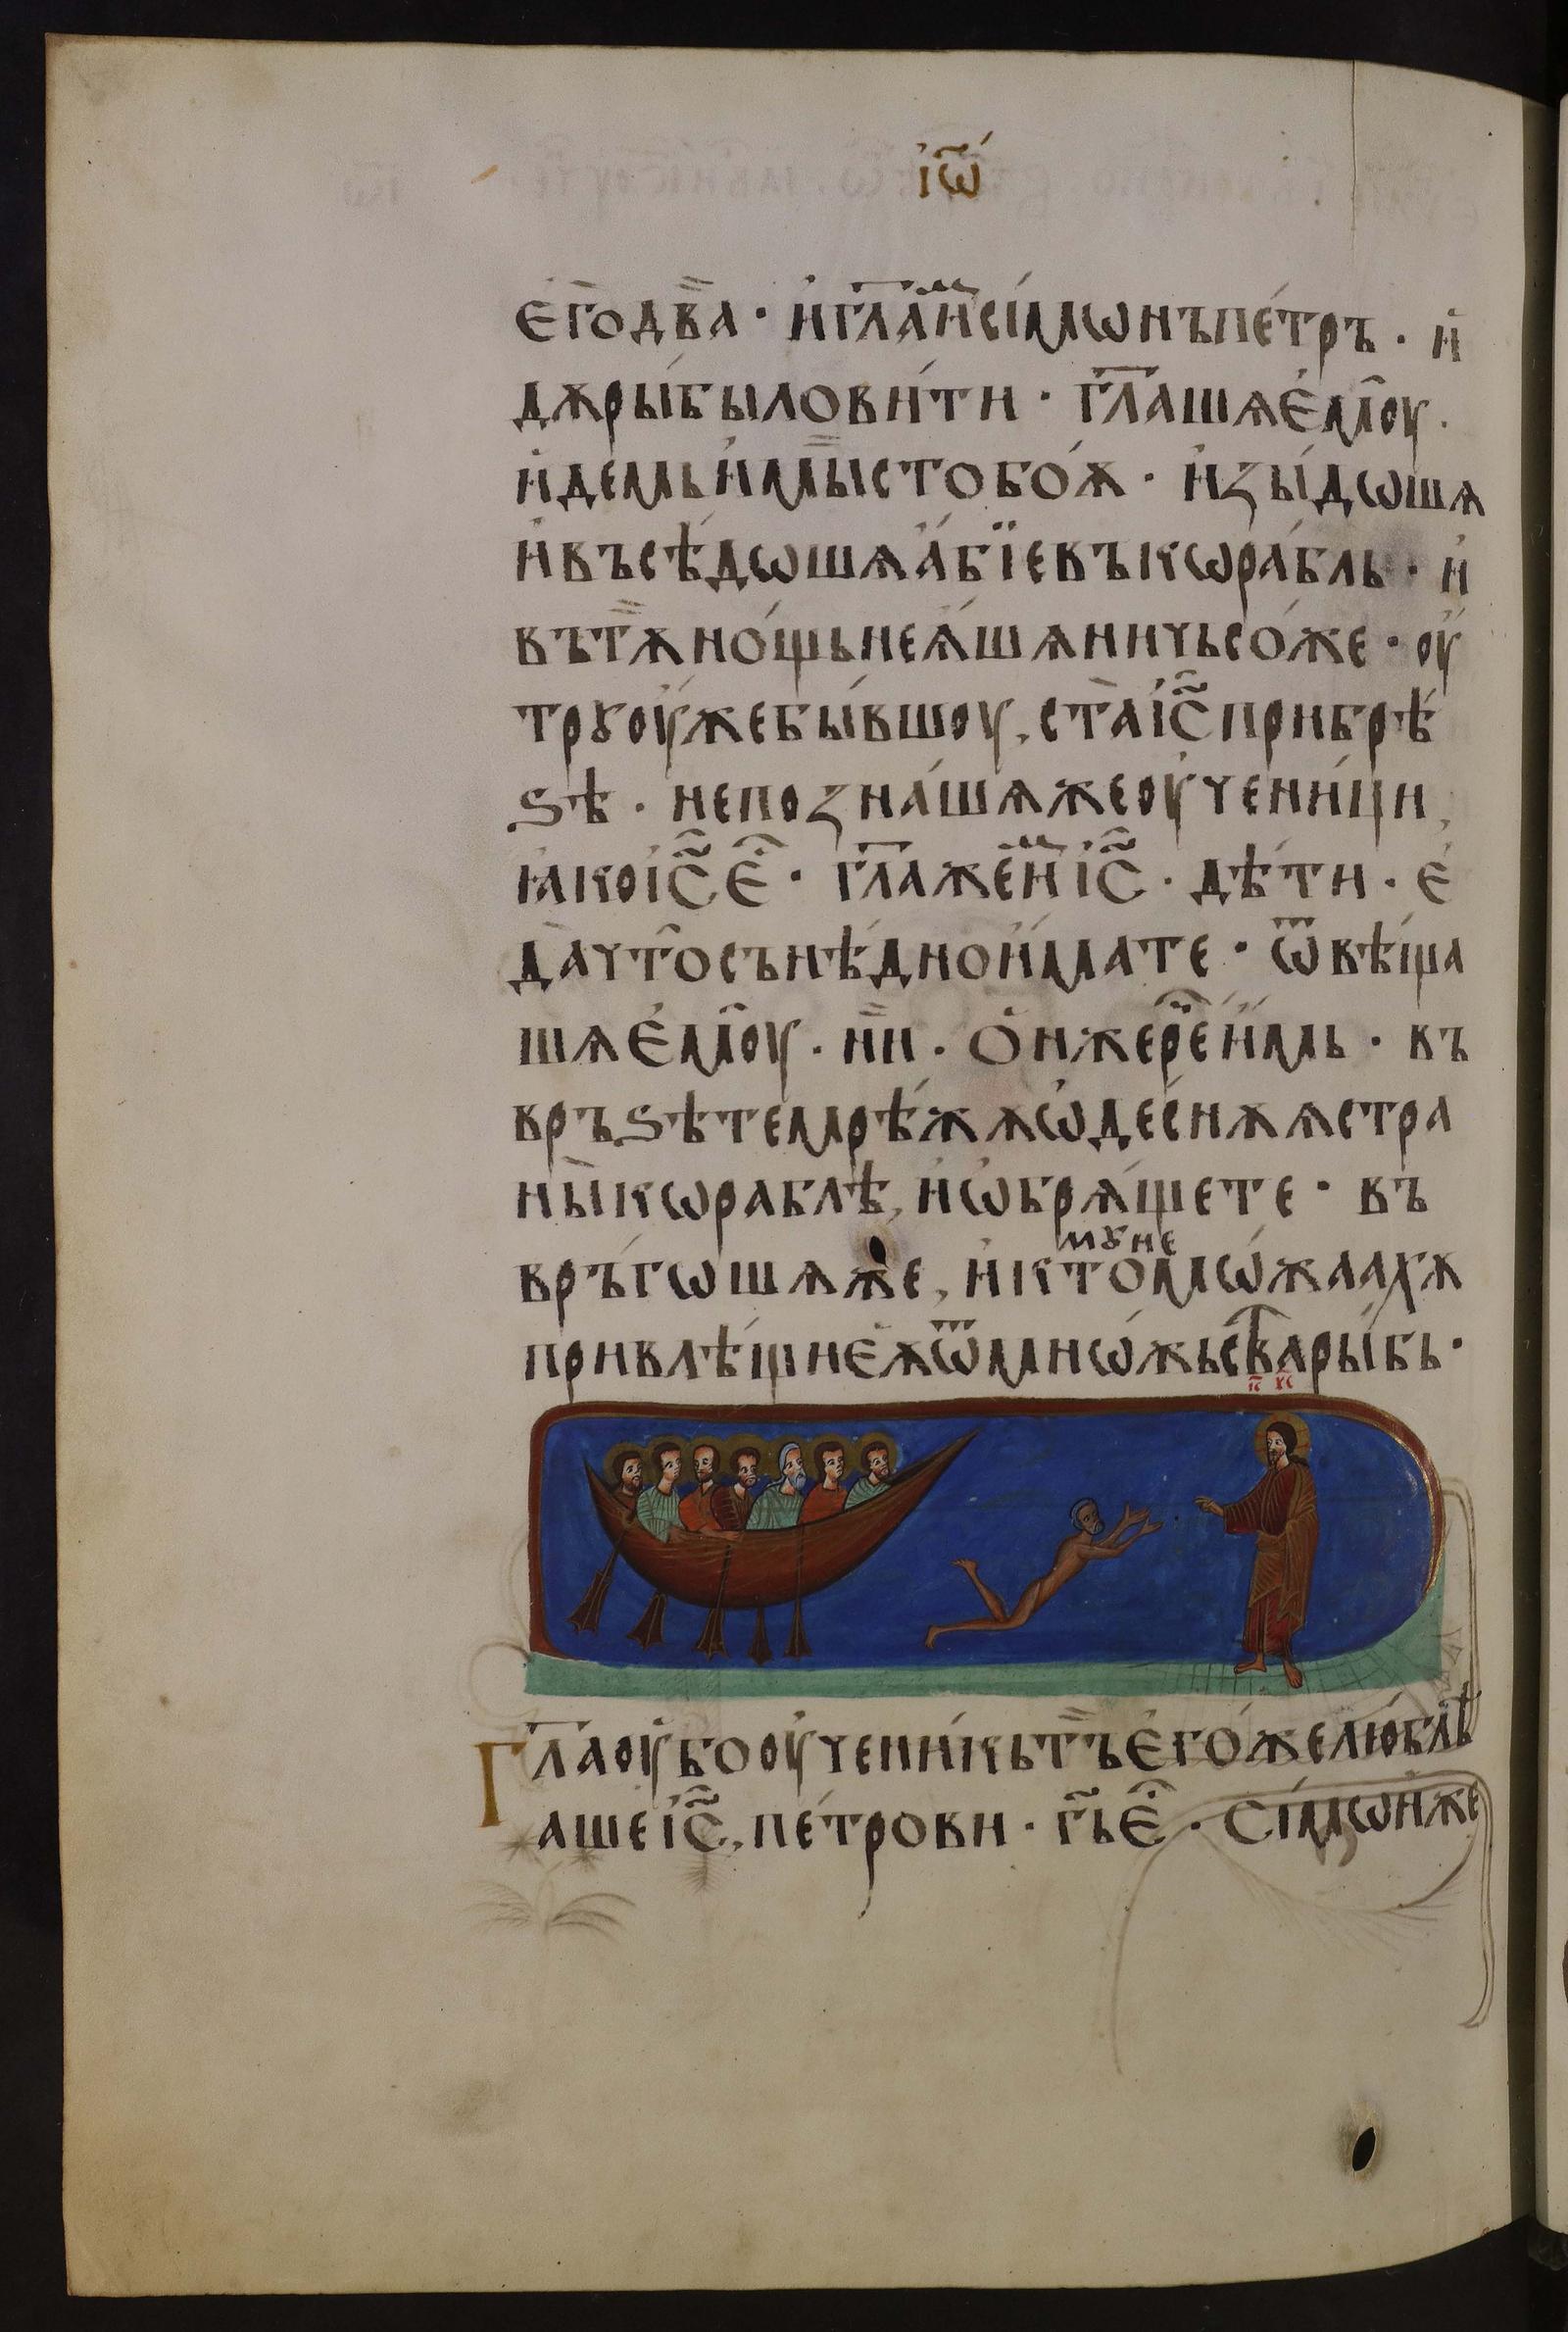 і҆ѡ҃
его̀два̏ · и҆гл҃аи҆мсі́мѡнъпе́тръ · и҆
дѫры́быловѝти · гл҃ашѧемоу ·
и҆демьи҆мы̏стобо́ѫ · и҆зы́дѡшѧ
и҆въсѣ́дѡшѧа҆́бїевъкѡра́бль · и҆
вътѫ̏но́щьнеѧ́шѧничьсо́же · оу҆
трꙋоу҆жебы́вшоу, ста̀і҆с҃прибрѣ́
ѕѣ · непозна́шѧжеоу҆чени́ци,
ꙗ҆коі҆с҃е҆ · гл҃ажеи҆мі҆с҃ · дѣ́ти · е҆
да̀чтосънѣ́днои҆́мате · ѿвѣ́ща
шѧемоу · нѝ · ѻ҆нжереи҆́мь · въ
връѕѣ́темрѣ́жѫѡ҆десне́ѫѧстра
ны̀кѡраблѣ, и҆ѡ҆брѧ́щете · въ
връ́гѡшѧже, и҆ктомꙋнемѡ́жаахѫ
привлѣ́щиеѧ҆ѿмнѡ́жьст҃вары́бь ·
п҃ х҃с
Гл҃аоу҆бооу҆чени́кьтъ̏его́желюблѣ́
ашеі҆с҃, пе́трови · г҃ье҆ · Сі́мѡнже